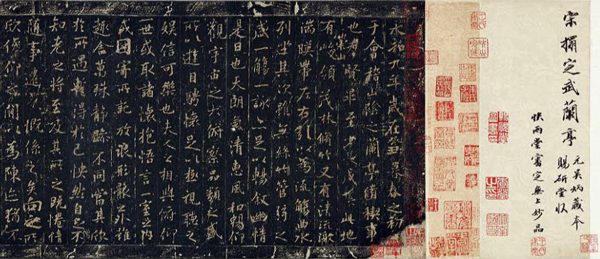 宋搨定武蘭亭
元吳炳藏本
賜研堂收
快雨堂審定無上妙品
永和九年歲在癸丑暮春之
于會稽山陰之蘭亭脩稧事
也羣賢畢至少長咸集此地
有崇山峻領茂林脩竹又有清流激
湍暎帶左右引以為流觴曲水
列坐其次雖無絲竹管弦之
盛一觴一詠亦足以暢敘幽情
是日也天朗氣清惠風和暢仰
觀宇宙之大俯察品類之盛
所以遊目騁懷足以極視聽之
娛信可樂也夫人之相與俯仰
一世或取諸懷抱悟言一室之內
或因寄所託放浪形骸之外雖
趣舍萬殊靜躁不同當其欣
於所遇暫得於己怏然自足不
知老之將至及其所之既惓情
隨事遷感慨係之矣向之所
欣俛仰之間以為陳迹猶不